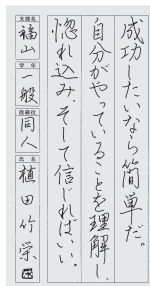 成功したいなら簡単だ。
自分がやっていることを理解し、
惚れ込み、そして信じればいい。
支部名
福山
学年
一般
段級位
同人
氏名
植田竹栄